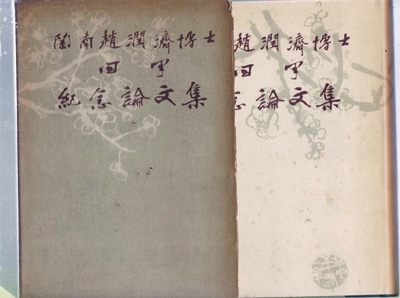 陶南趙潤濟博士
回甲
紀念論文集
趙潤濟博士
回甲
念論文集